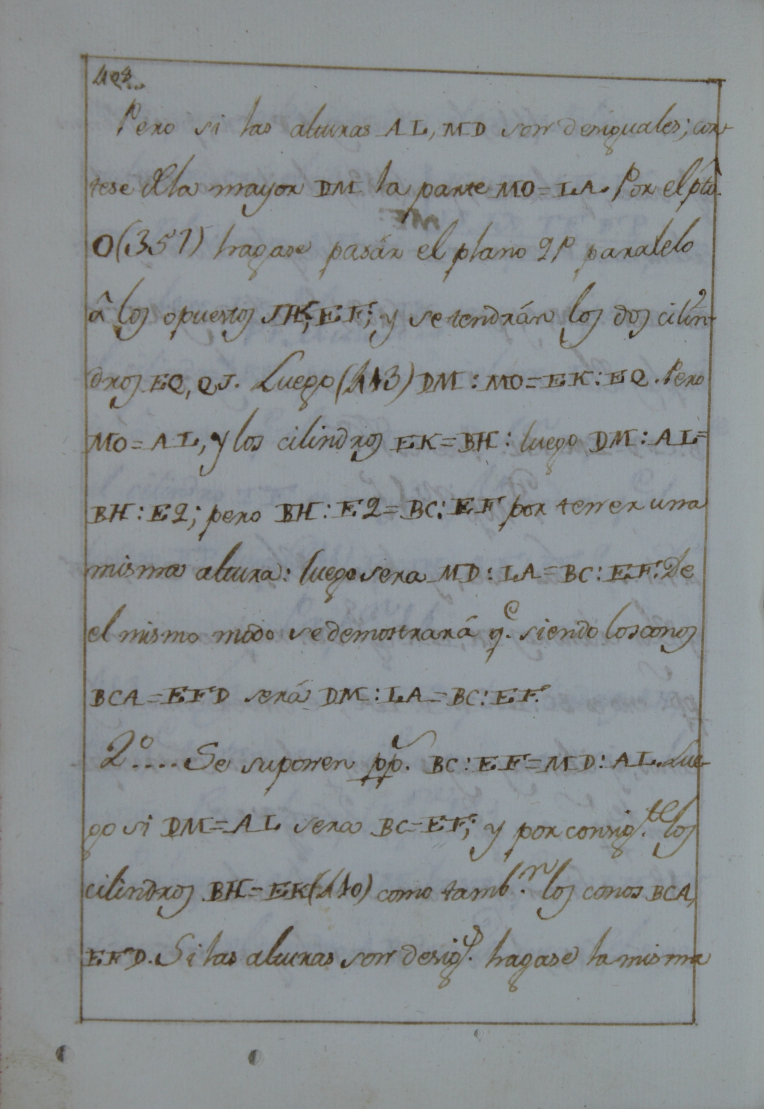 Pero si las alturas AL, MD son desiguales; cor-
tese de la mayor DM la parte MO=LA. Por el pto.
O(351) hagase pasár el plano QP paralelo
â los opuestos JK, EF; y se tendrán los dos cilin-
dros EQ, QJ. Luego (413) DM : MO=EK : EQ. Pero
MO=AL, y los cilindros EK=BH : luego DM : AL=
BH : EQ; pero BH : EQ=BC : EF por tener una
misma altura: luego sera MD : LA=BC : EF. De
el mismo modo se demostrará q.e siendo los conos
BCA=EFD será DM : LA=BC : EF.
2º.... Se suponen pp.s BC : EF=MD : AL. Lue-
go si DM=AL sera BC=EF; y por consig.te los
cilindros BH=EK(410) como tamb.n los conos BCA,
EFD. Si las alturas son desig.s hagase la misma